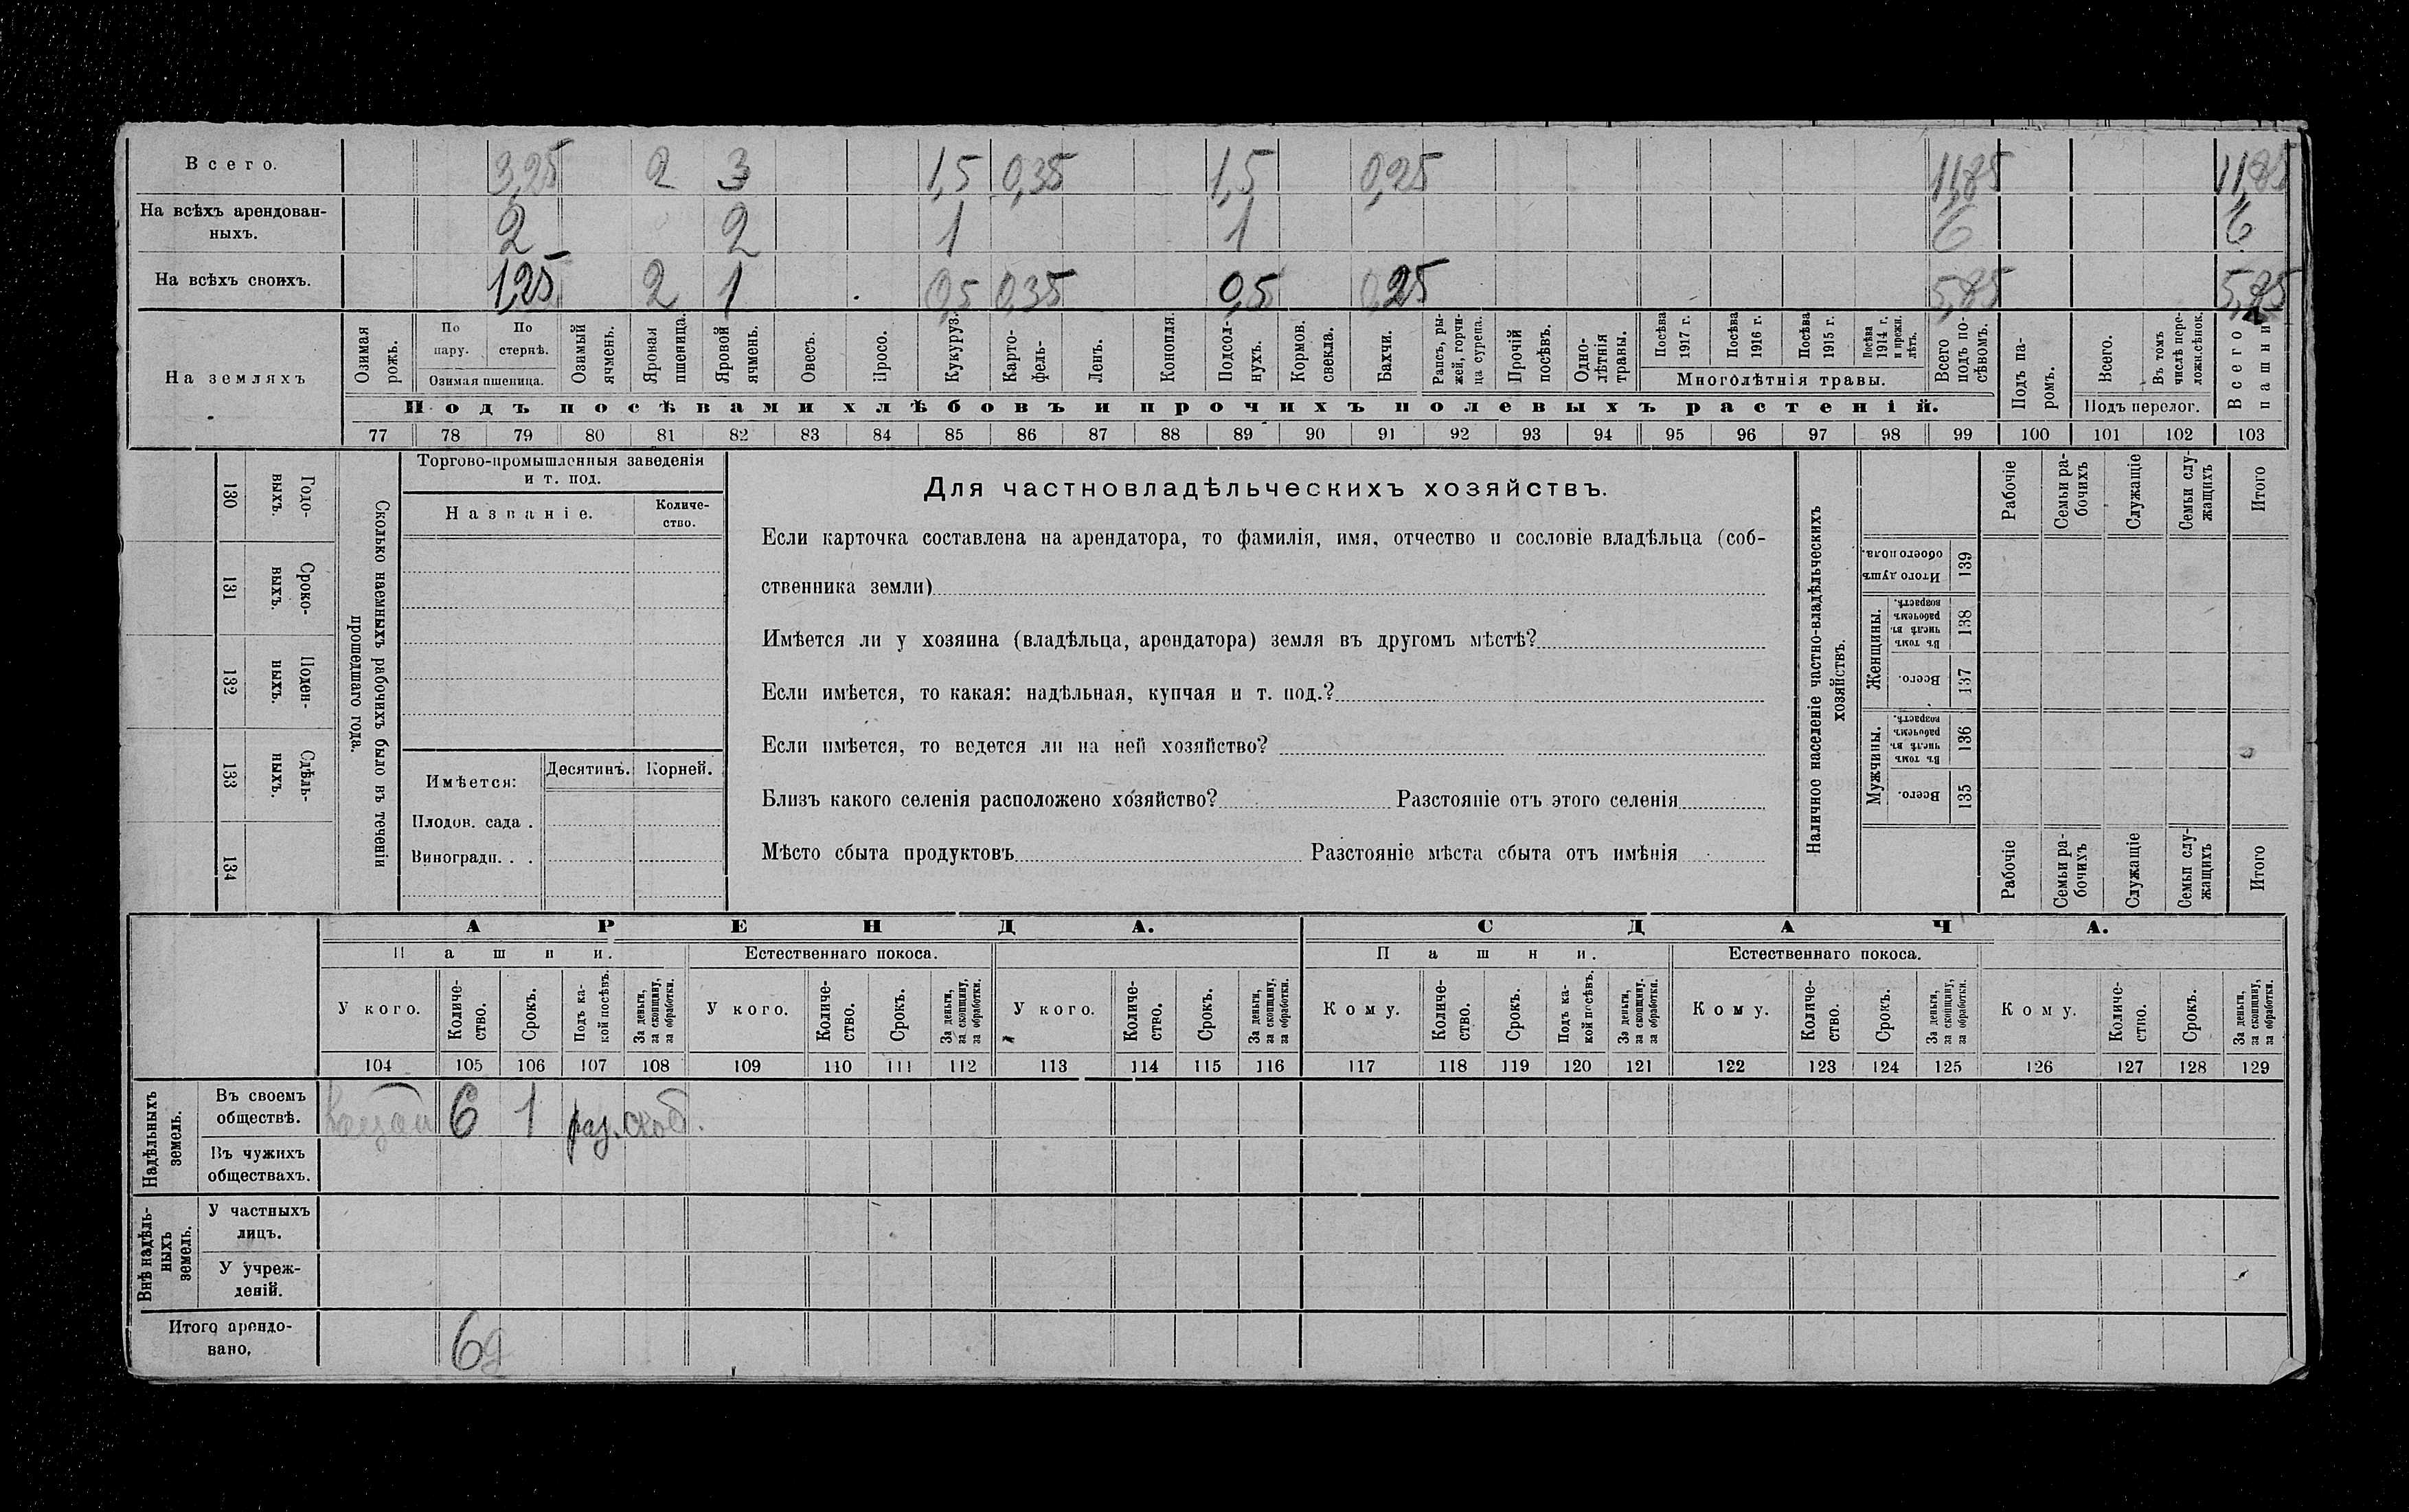 Всего. 3,25 2 3 1,5 0,35 1,5 0,25 11,85 11,85
На всѣхъ арендован-
ныхъ. 2 2 1 1 6 6
На всѣхъ своихъ. 1,25 2 1 0,5 0,35 0,5 0,25 5,85 5,85
На земляхъ
Озимая рожь.
По пару.
По стернѣ.
Озимая пшеница.
Озимый ячмень.
Яровая пшеница.
Яровой ячмень.
Овесъ.
Просо.
Кукуруз.
Карто-
фель-
Ленъ.
Конопля.
Подсол-
нухъ.
Кормов. свекла.
Бахчи.
Рапсъ, ры-
жей, горчи-
ца сурепа.
Прочій посѣвъ.
Одно-
лѣтнія травы.
Посѣва 1917 г.
Посѣва 1916 г.
Посѣва 1915 г.
Посѣва 1914 г. и прежн. лѣтъ.
Многолѣтнія травы.
Всего подъ по-
сѣвомъ.
Подъ па-
ромъ.
Всего.
Въ томъ числѣ пере-
ложн.сѣнок.
Подъ перелог.
Всего пашни
Подъ посѣвами хлѣбовъ и прочихъ полевыхъ растеній.
77 78 79 80 81 82 83 84 85 86 87 88 89 90 91 92 93 94 95 96 97 98 99 100 101 102 103
130 Годо-
выхъ.
131 Сроко-
выхъ.
132 Поден-
ныхъ.
133 Сдѣль-
ныхъ.
134
Сколько наемныхъ рабочихъ было въ теченіи
прошедшаго года.
Торгово-промышленныя заведенія
и т. под.
Названіе.
Количе-
ство.
Имѣется: Десятинъ. Корней.
Плодов. сада .
Виноградн. . .
Для частновладѣльческихъ хозяйствъ.
Если карточка составлена на арендатора, то фамилія, имя, отчество и сословіе владѣльца (соб-
ственника земли)
Имѣется ли у хозяина (владѣльца, арендатора) земля въ другомъ мѣстѣ?
Если имѣется, то какая: надѣльная, купчая и т. под.?
Если имѣется, то ведется ли на ней хозяйство?
Близъ какого селенія расположено хозяйство? Разстояніе отъ этого селенія
Мѣсто сбыта продуктовъ Разстояніе мѣста сбыта отъ имѣнія
Наличное населеніе частно-владѣльческихъ
хозяйствъ.
Рабочіе
Семьи ра-
бочихъ
Служащіе
Семьи слу-
жащихъ
Итого
Итого душъ обоего пола. 139
Женщины.
Въ томъ числѣ въ рабочемъ возрастѣ. 138
Всего. 137
Мужчины.
Въ томъ числѣ въ рабочемъ возрастѣ. 136
Всего. 135
Рабочіе
Семьи ра-
бочихъ
Служащіе
Семьи слу-
жащихъ
Итого
АРЕНДА. СДАЧА.
Пашни. Естественнаго покоса. Пашни. Естественнаго покоса.
У кого. Количе-
ство. Срокъ. Подъ ка-
кой посѣвъ. За деньги, за скопщину, за обработки.
У кого. Количе-
ство. Срокъ. За деньги, за скопщину, за обработки.
У кого. Количе-
ство. Срокъ. За деньги, за скопщину, за обработки.
Кому. Количе-
ство. Срокъ. Подъ ка-
кой посѣвъ. За деньги, за скопщину, за обработки.
Кому. Количе-
ство. Срокъ. За деньги, за скопщину, за обработки.
Кому. Количе-
ство. Срокъ. За деньги, за скопщину, за обработки.
104 105 106 107 108 109 110 111 112 113 114 115 116 117 118 119 120 121 122 123 124 125 126 127 128 129
Надѣльныхъ земель.
Въ своемъ
обществѣ. 6 1 раз.
Въ чужихъ
обществахъ.
Внѣ надѣль-
ныхъ земель.
У частныхъ
лицъ.
У учреж-
деній.
Итого арендо-
вано, 6д